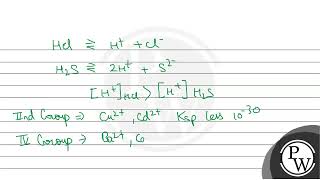 HCl ⇌ H⁺ + Cl⁻
H₂S ⇌ 2H⁺ + S²⁻
[H⁺]HCl > [H⁺]H₂S
IInd Group ⇒ Cu²⁺, Cd²⁺ Ksp less 10⁻³⁰
IV Group ⇒ Ba²⁺, C
PW
PW